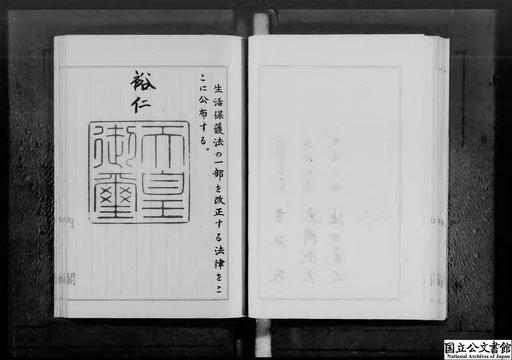 生活保護法の一部を改正する法律をこ
こに公布する。
裕仁
天皇
御璽
内
閣
国立公文書館
National Archives of Japan